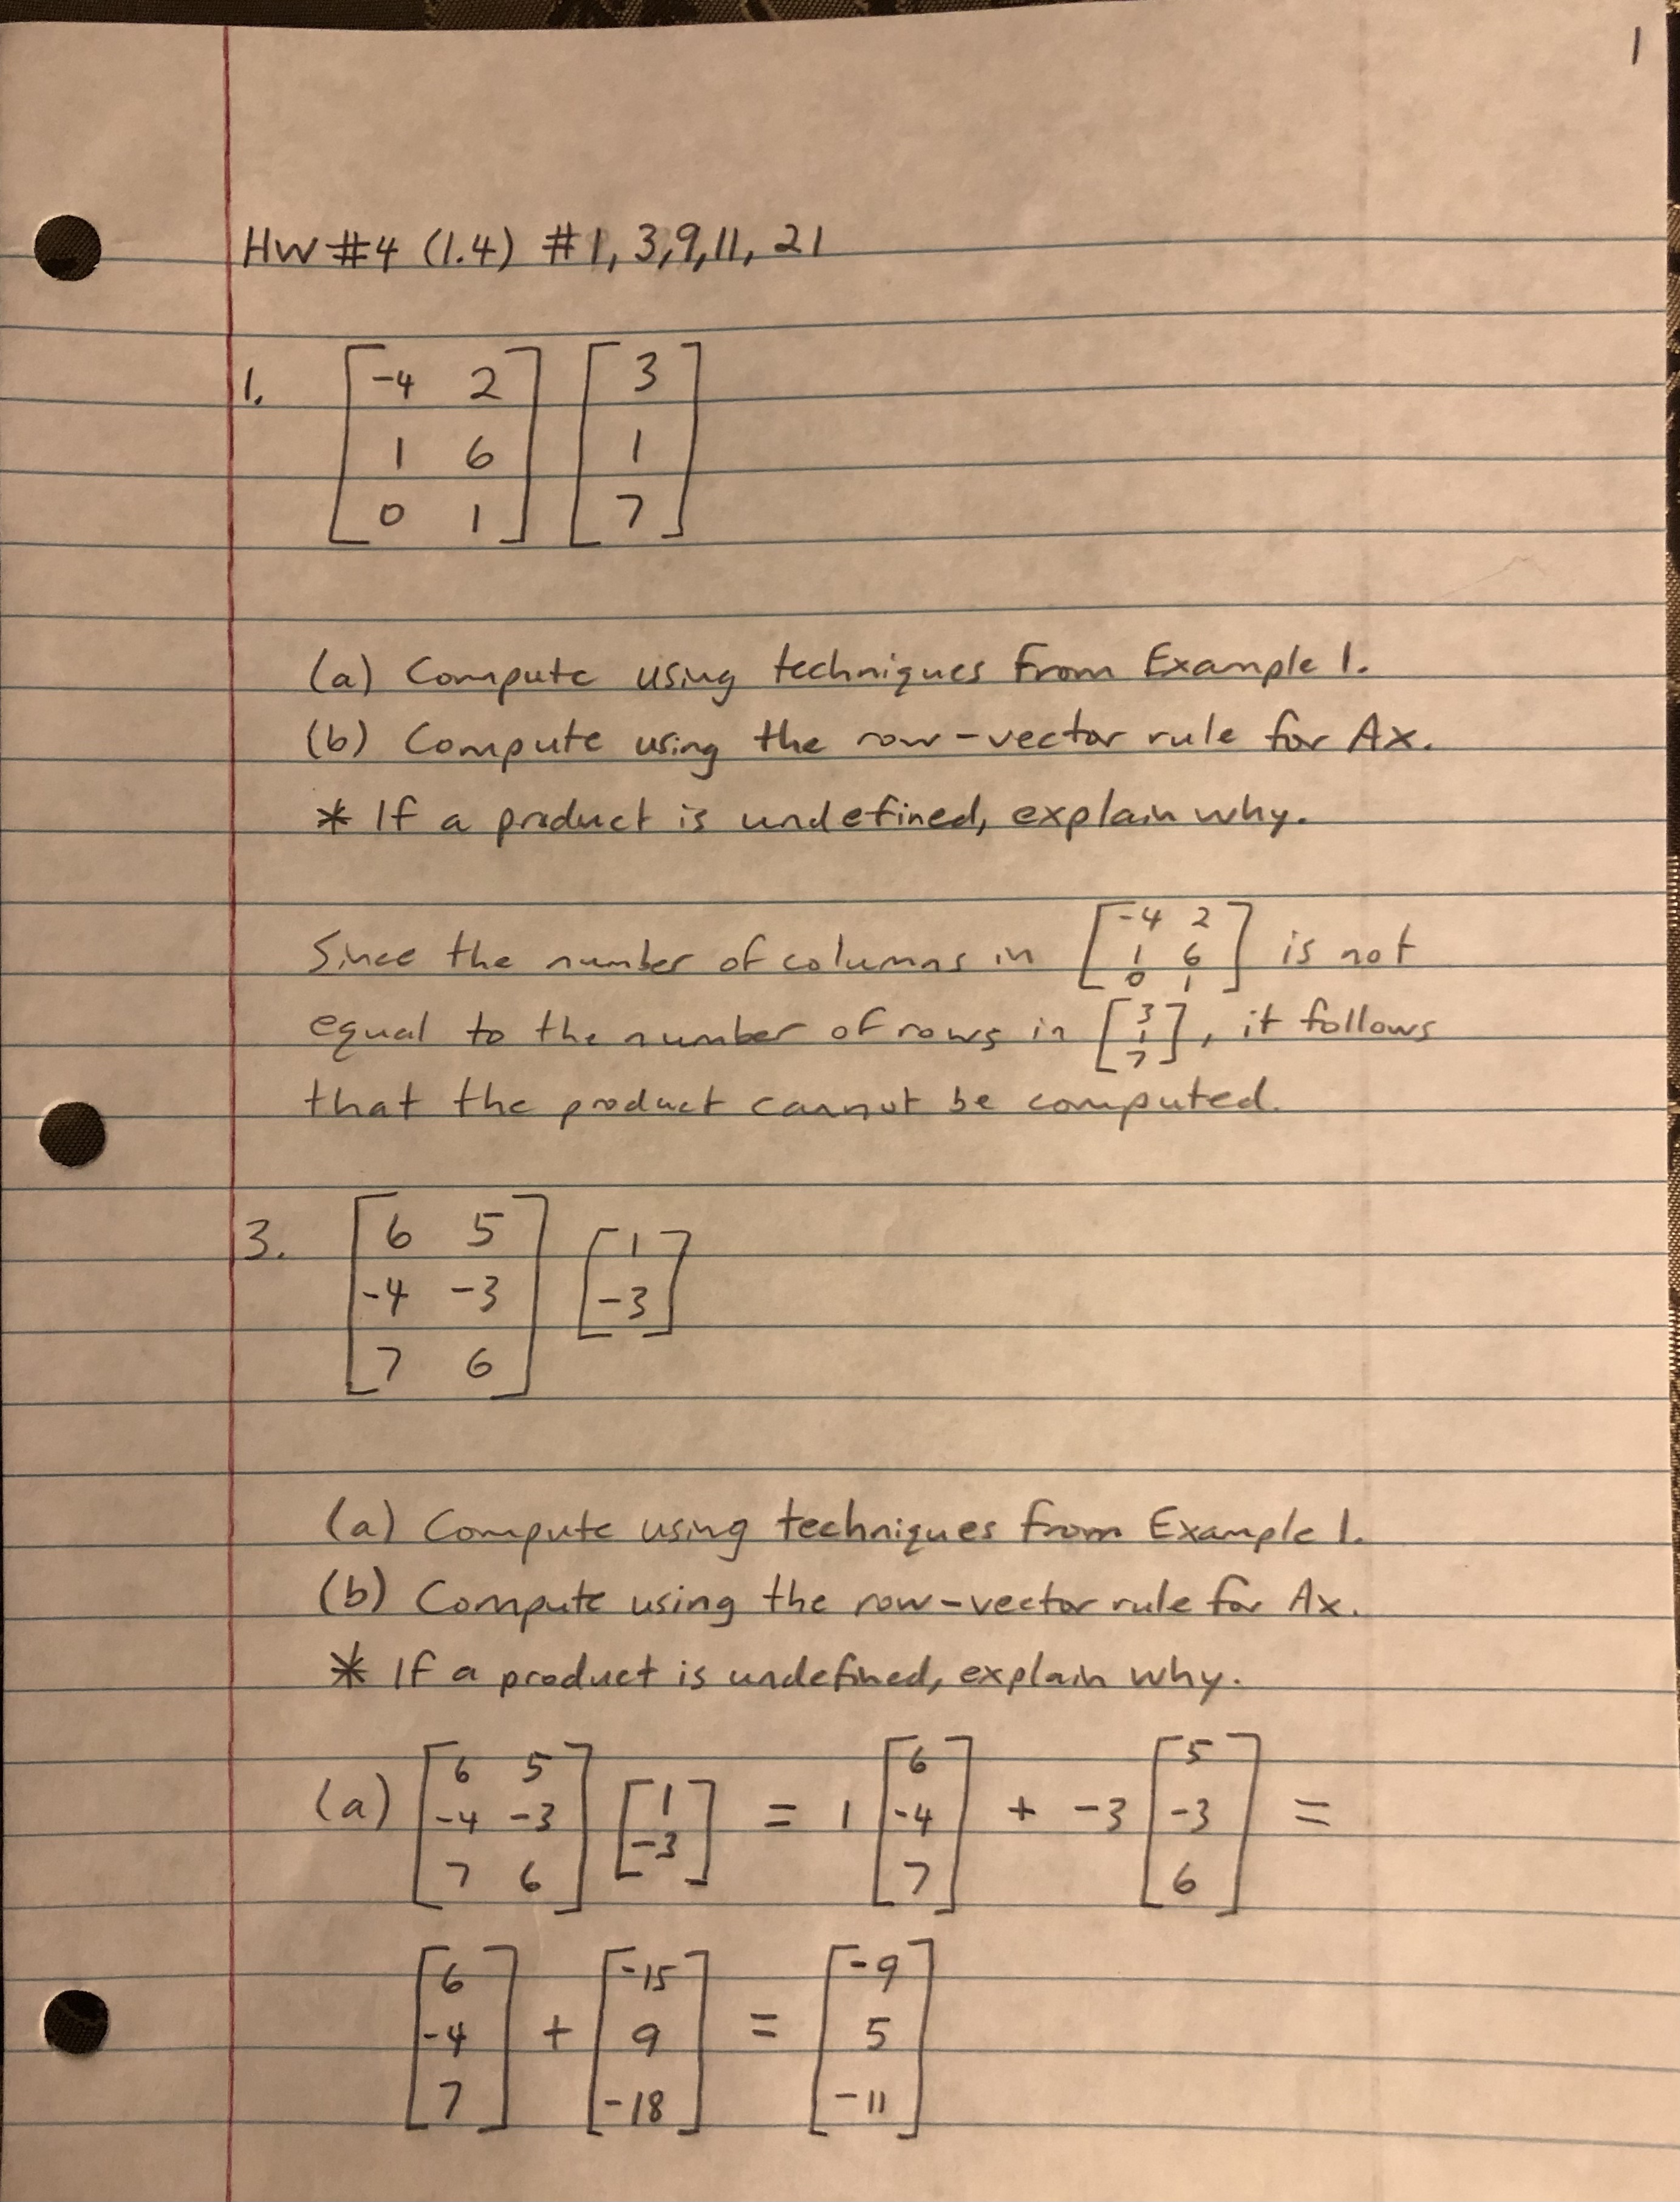 1
HW #4 (1.4) #1, 3, 9, 11, 21
1. [-4 2] [3]
[1 6] [1]
[0 1] [7]
(a) Compute using techniques from Example 1.
(b) Compute using the row-vector rule for Ax.
* If a product is undefined, explain why.
Since the number of columns in [-4 2; 1 6; 0 1] is not
equal to the number of rows in [3; 1; 7], it follows
that the product cannot be computed.
3. [6 5] [1]
[-4 -3] [-3]
[7 6]
(a) Compute using techniques from Example 1.
(b) Compute using the row-vector rule for Ax.
* If a product is undefined, explain why.
(a) [6 5; -4 -3; 7 6] [1; -3] = 1 [6; -4; 7] + -3 [5; -3; 6] =
[6; -4; 7] + [-15; 9; -18] = [-9; 5; -11]